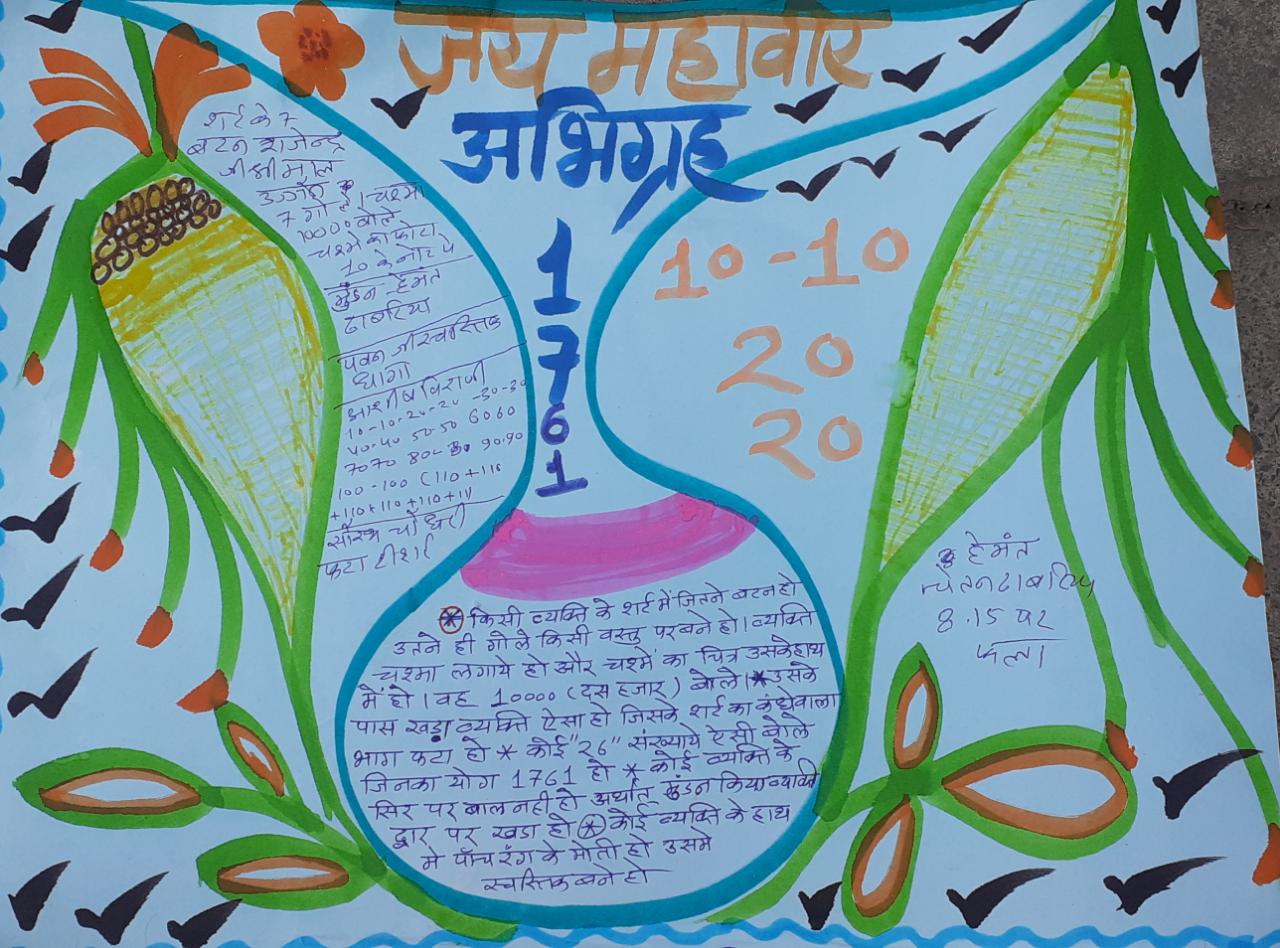 जय महावीर
अभिग्रह
शर्ट के 7
बटन राजेन्द्र
जी श्रीमाल
उज्जैन
7 गोले । चश्मा
10000 बोले
चश्मे का फोटा
10 के नोट 4
मुंडन हेमंत
ढाबरिया
पवन जी स्वास्तिक
धागा
आशीष विराजी
10-10-20-20 -30-30
40-40 50-50 6060
7070 80-80 90.90
100-100 (110+110
+110+110+110+11
सौरभ चौधरी
फटा टीशर्ट
1
7
6
1
10-10
20
20
* किसी व्यक्ति के शर्ट में जितने बटन हो
उतने ही गोले किसी वस्तु पर बने हो। व्यक्ति
चश्मा लगाये हो और चश्में का चित्र उसके हाथ
में हो। वह 10000 (दस हजार) बोले। * उसके
पास खड़ा व्यक्ति ऐसा हो जिसके शर्ट का कंधेवाला
भाग फटा हो * कोई "26" संख्याये ऐसी बोले
जिनका योग 1761 हो * कोई व्यक्ति के
सिर पर बाल नही हो अर्थात मुंडन किया व्यक्ति
द्वार पर खडा हो * कोई व्यक्ति के हाथ
मे पाँच रंग के मोती हो उसमे
स्वस्तिक बने हो
हेमंत
चेतन ढाबरिया
8.15 पर
फला